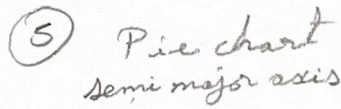 5 Pie chart
semi major axis